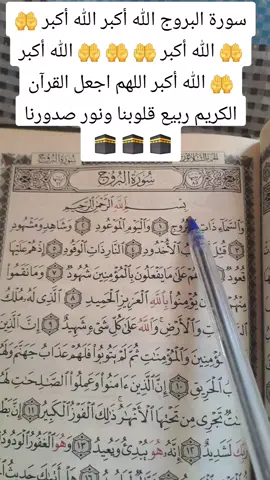 سورة البروج الله أكبر الله أكبر 🤲
🤲 الله أكبر 🤲 🤲 🤲 الله أكبر
🤲 الله أكبر اللهم اجعل القرآن
الكريم ربيع قلوبنا ونور صدورنا
🕋 🕋 🕋
سُورَةُ البُرُوجِ
سُورَةُ البُرُوجِ
بِسْمِ اللَّهِ الرَّحْمَٰنِ الرَّحِيمِ
وَالسَّمَاءِ ذَاتِ الْبُرُوجِ ١ وَالْيَوْمِ الْمَوْعُودِ ٢ وَشَاهِدٍ وَمَشْهُودٍ
٣ قُتِلَ أَصْحَابُ الْأُخْدُودِ ٤ النَّارِ ذَاتِ الْوَقُودِ ٥ إِذْ هُمْ عَلَيْهَا
قُعُودٌ ٦ وَهُمْ عَلَىٰ مَا يَفْعَلُونَ بِالْمُؤْمِنِينَ شُهُودٌ ٧ وَمَا نَقَمُوا
مِنْهُمْ يُؤْمِنُوا بِاللَّهِ الْعَزِيزِ الْحَمِيدِ ٨ الَّذِي لَهُ مُلْكُ
وَالْأَرْضِ وَاللَّهُ عَلَىٰ كُلِّ شَيْءٍ شَهِيدٌ ٩ إِنَّ الَّذِينَ
الْمُؤْمِنِينَ وَالْمُؤْمِنَاتِ ثُمَّ لَمْ يَتُوبُوا فَلَهُمْ عَذَابُ جَهَنَّمَ وَلَهُمْ
الْحَرِيقِ ١٠ إِنَّ الَّذِينَ آمَنُوا وَعَمِلُوا الصَّالِحَاتِ
تَجْرِي مِنْ تَحْتِهَا الْأَنْهَارُ ذَٰلِكَ الْفَوْزُ الْكَبِيرُ ١١ إِنَّ بَطْشَ
لَشَدِيدٌ ١٢ إِنَّهُ هُوَ يُبْدِئُ وَيُعِيدُ ١٣ وَهُوَ الْغَفُورُ الْوَدُودُ